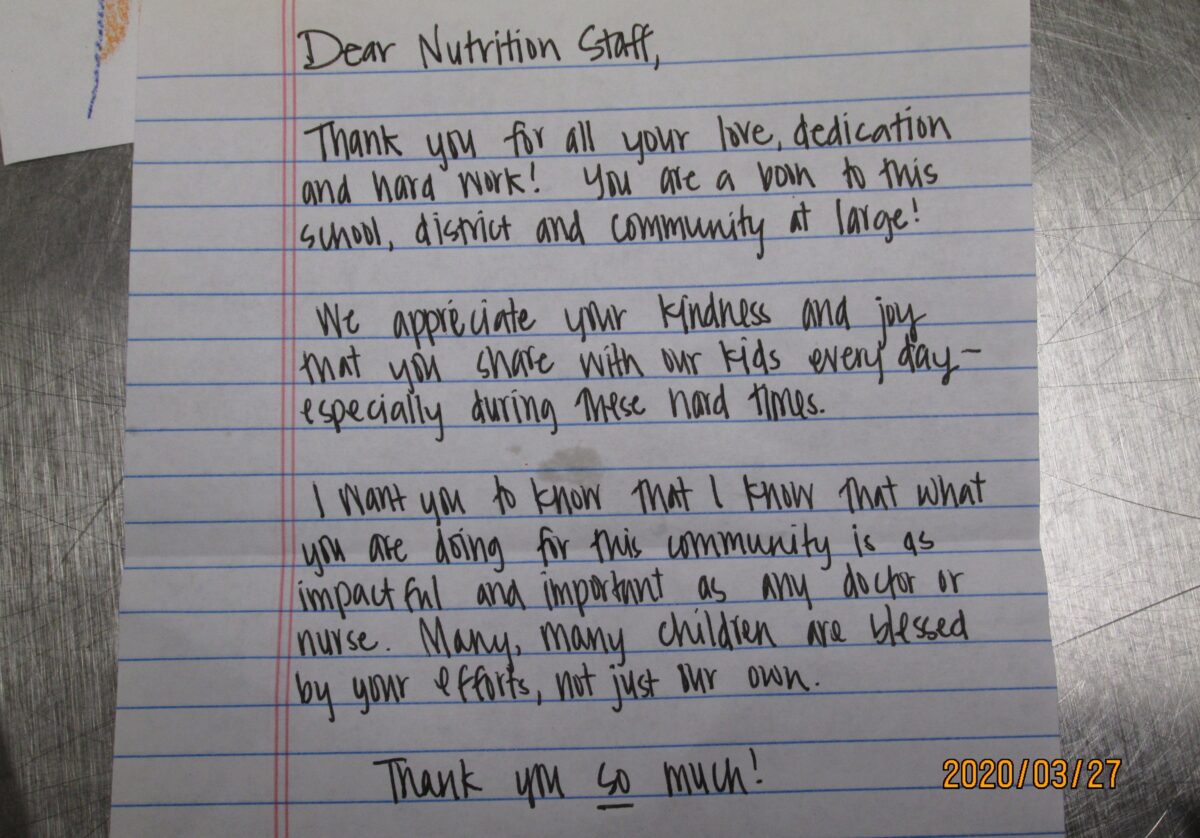 Dear Nutrition Staff,
Thank you for all your love, dedication
and hard work! You are a boon to this
school, district and community at large!
We appreciate your kindness and joy
that you share with our kids every day-
especially during these hard times.
I want you to know that I know that what
you are doing for this community is as
impactful and important as any doctor or
nurse. Many, many children are blessed
by your efforts, not just our own.
Thank you so much!
2020/03/27